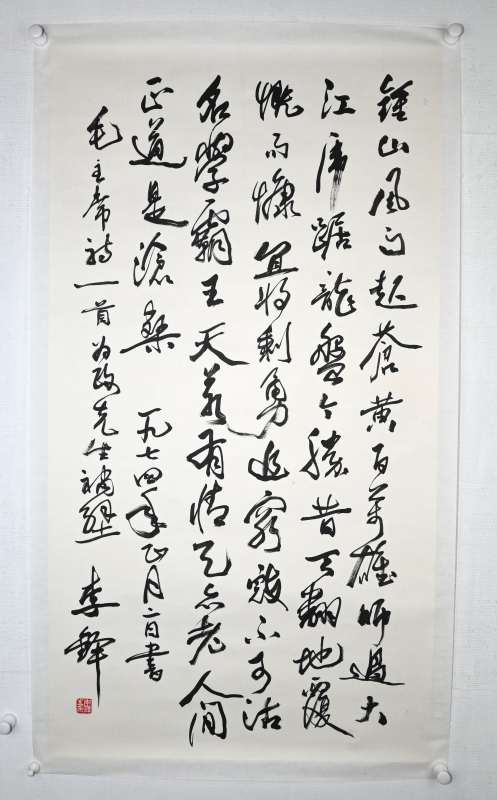 鍾山風雨起蒼黄百萬雄師過大
江虎踞龍盤今勝昔天翻地覆
慨而慷宜将剩勇追窮寇不可沽
名學霸王天若有情天亦老人间
正道是滄桑 一九七四年正月二日書
毛主席詩一首为政先生補壁 李鐸